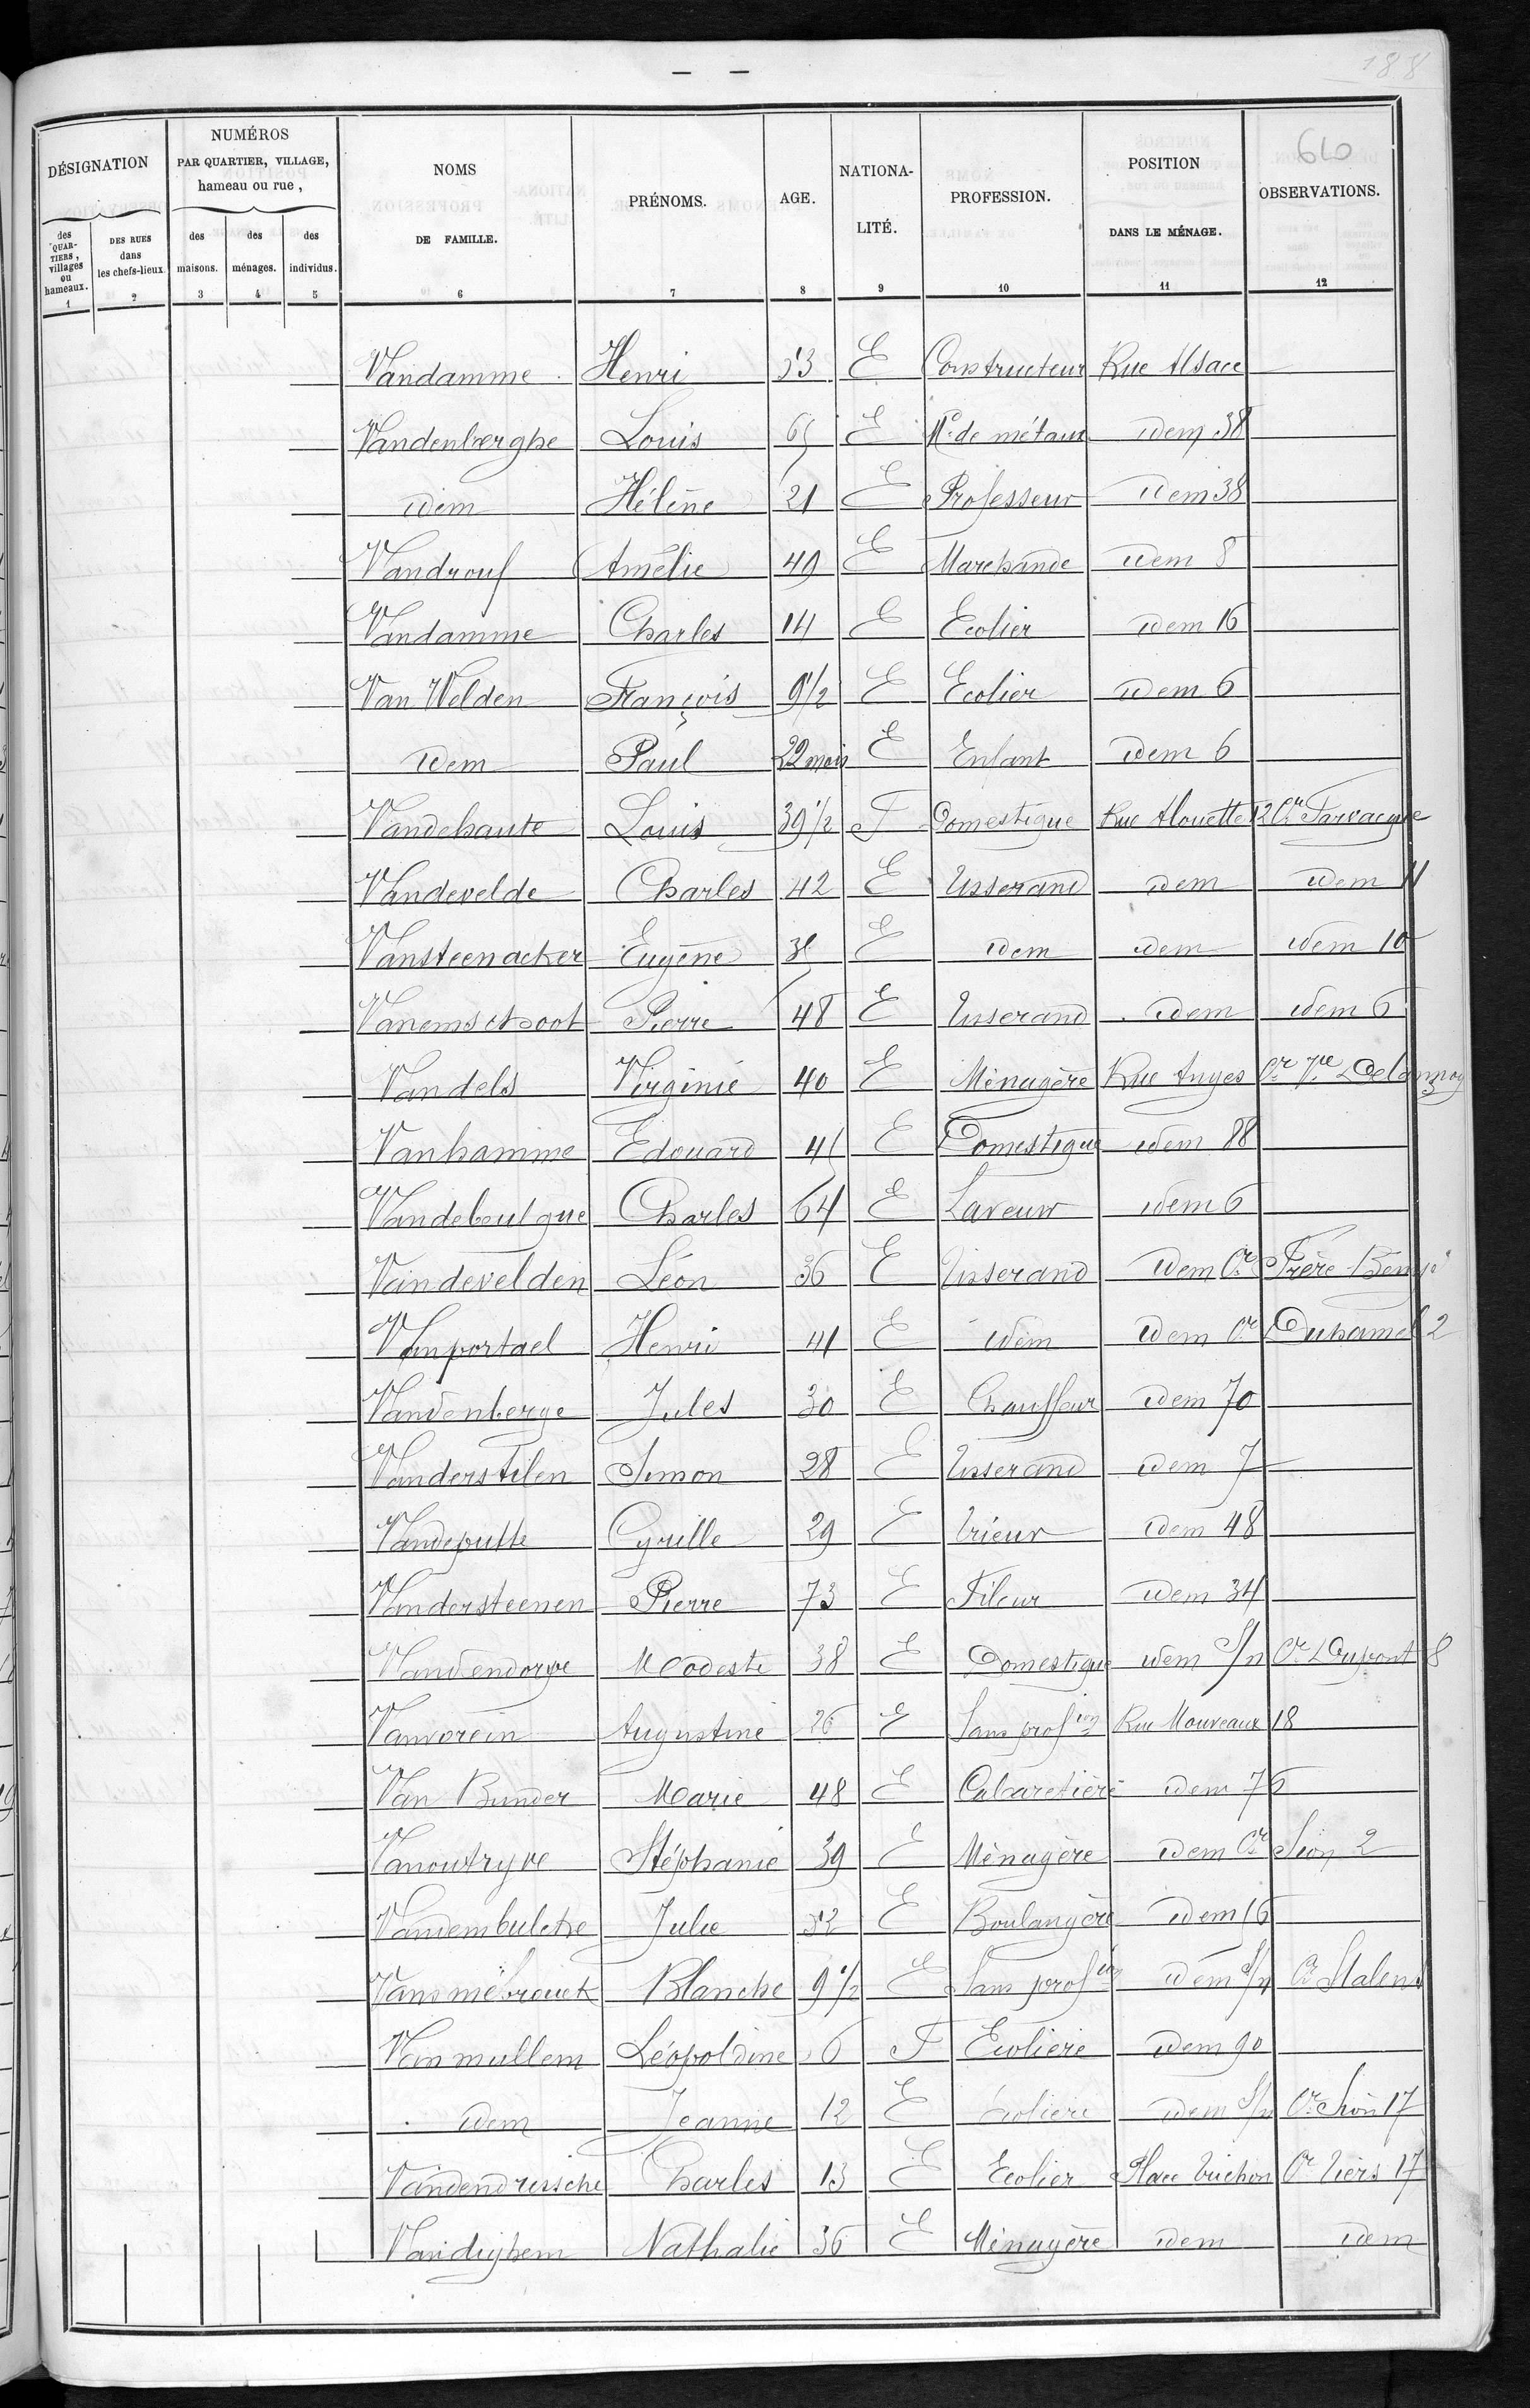 188
— —
DÉSIGNATION
NUMÉROS PAR QUARTIER, VILLAGE, hameau ou rue,
NOMS DE FAMILLE.
PRÉNOMS.
AGE.
NATIONALITÉ.
PROFESSION.
POSITION DANS LE MÉNAGE.
610
OBSERVATIONS.
des QUARTIERS, villages ou hameaux.
DES RUES dans les chefs-lieux.
des maisons.
des ménages.
des individus.
1 2 3 4 5 6 7 8 9 10 11 12
Vandamme Henri 53 E Constructeur Rue Alsace
Vandenberghe Louis 65 E Md de métaux idem 38
idem Hélène 21 E Professeur idem 38
Vandrouf Amélie 49 E Marchande idem 8
Vandamme Charles 14 E Ecolier idem 16
Van Welden François 9 1/2 E Ecolier idem 6
idem Paul 22 mois E Enfant idem 6
Vandehaute Louis 39 1/2 F Domestique Rue Alouette 12 Cr Farvacque
Vandevelde Charles 42 E Tisserand idem idem 11
Vansteenacker Eugène 35 E idem idem idem 10
Vanemschoot Pierre 48 E Tisserand idem idem 6
Vandels Virginie 40 E Ménagère Rue Anges Cr Vve Delannoy 3
Vanhamme Edouard 45 E Domestique idem 88
Vandeboulque Charles 64 E Laveur idem 6
Vandevelden Léon 36 E Tisserand idem Cr Frère
Vanportael Henri 41 E idem idem Cr Duhamel 2
Vandenberge Jules 30 E Chauffeur idem 70
Vanderstilen Simon 28 E Tisserand idem 7
Vandeputte Cyrille 29 E Trieur idem 48
Vandersteenen Pierre 73 E Fileur idem 34
Vandendorpe Modeste 38 E Domestique idem S/n Cr Dupont 8
Vanvorein Augustine 26 E Sans profion Rue Mouveaux 18
Van Bunder Marie 48 E Cabaretière idem 76
Vanoutryve Stéphanie 39 E Ménagère idem Cr Sion 2
Vandembulcke Julie 52 E Boulangère idem 16
Vansmebrouck Blanche 9 1/2 E Sans profion idem S/n Cr Stalens
Vanmullem Léopoldine 6 F Ecolière idem 90
idem Jeanne 12 E Ecolière idem S/n Cr Sion 17
Vandendrissche Charles 13 E Ecolier Place Trichon Cr Tiers 17
Vandighem Nathalie 36 E Ménagère idem idem